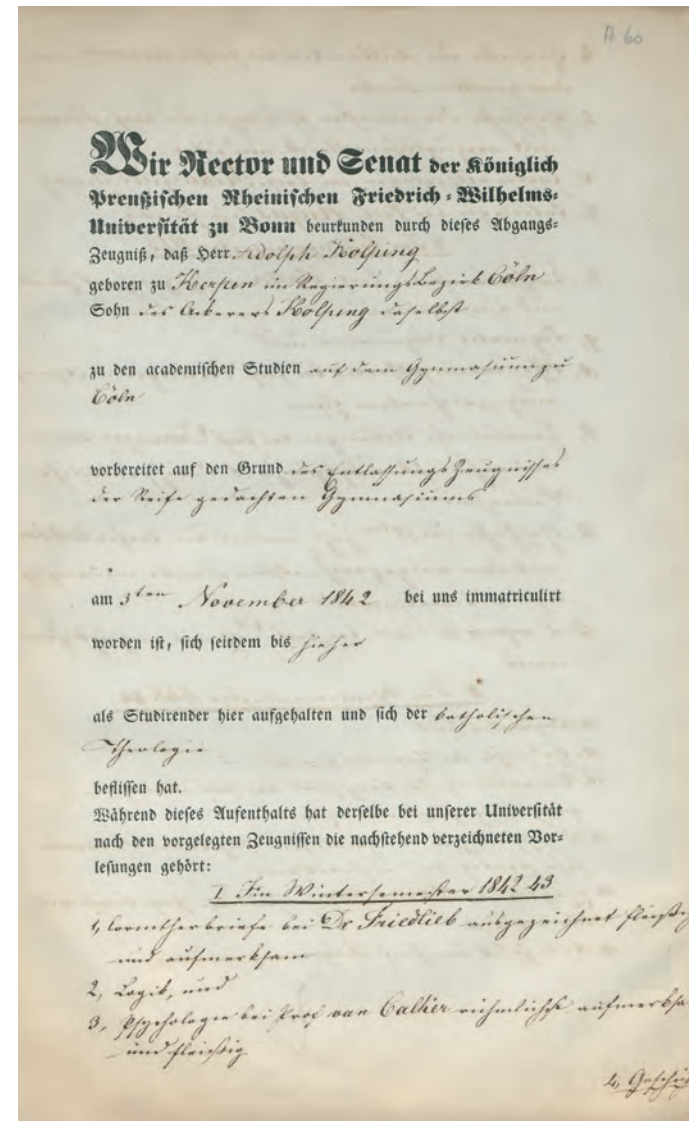 A 60
Wir Rector und Senat der Königlich
Preußischen Rheinischen Friedrich-Wilhelms-
Universität zu Bonn beurkunden durch dieses Abgangs-
Zeugniß, daß Herr Adolph Kolping
geboren zu Kerpen im Regierungsbezirk Cöln
Sohn des Ackerers Kolping daselbst
zu den academischen Studien auf dem Gymnasium zu
Cöln
vorbereitet auf den Grund des Entlassungs Zeugnisses
der Reife gedachten Gymnasiums
am 3ten November 1842 bei uns immatriculirt
worden ist, sich seitdem bis hieher
als Studirender hier aufgehalten und sich der katholischen
Theologie
beflissen hat.
Während dieses Aufenthalts hat derselbe bei unserer Universität
nach den vorgelegten Zeugnissen die nachstehend verzeichneten Vor-
lesungen gehört:
I Im Wintersemester 1842 43
1, Corintherbriefe bei Dr Friedlieb ausgezeichnet fleißig
und aufmerksam
2, Logik, und
3, Psychologie bei Prof van Calker rühmlichst aufmerksa
und fleißig
4, Geschi